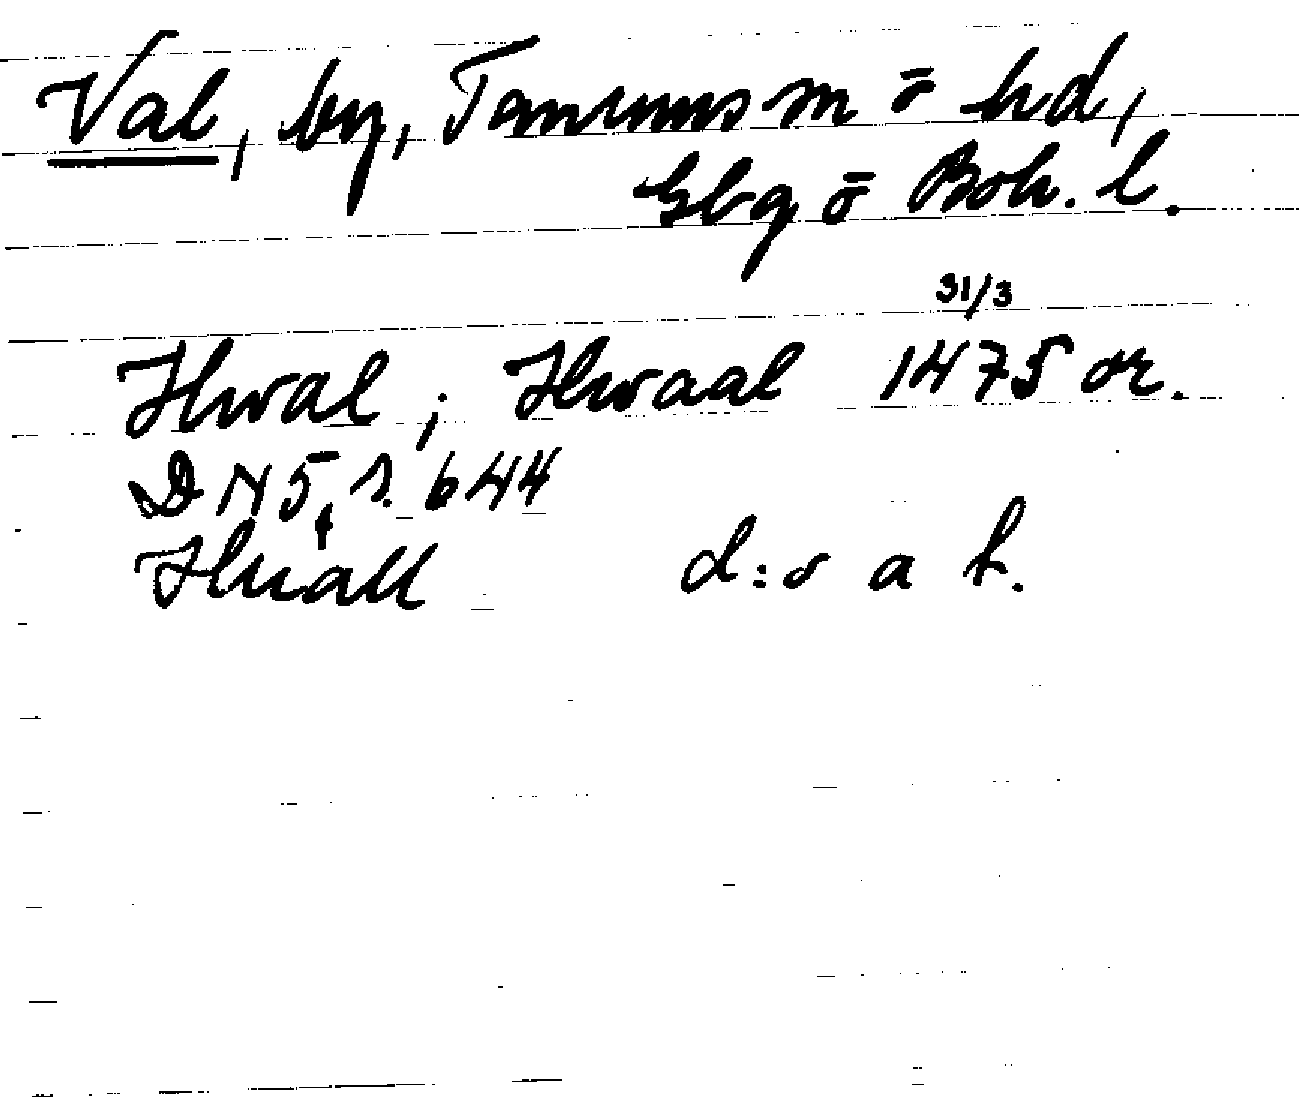 Val, by, Tanums sn o hd,
Gbg o Boh. l.
31/3
Hwal; Hwaal 1475 or.
DN 5, s. 644
Huall d:o a h.